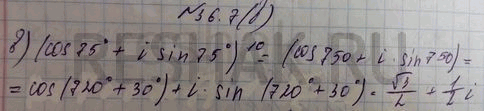 №36.7(в)
в) (cos 75° + i sin 75°)¹⁰ = (cos 750 + i · sin 750) =
= cos (720° + 30°) + i · sin (720° + 30°) = √3/2 + 1/2 i
RESHAK.RU